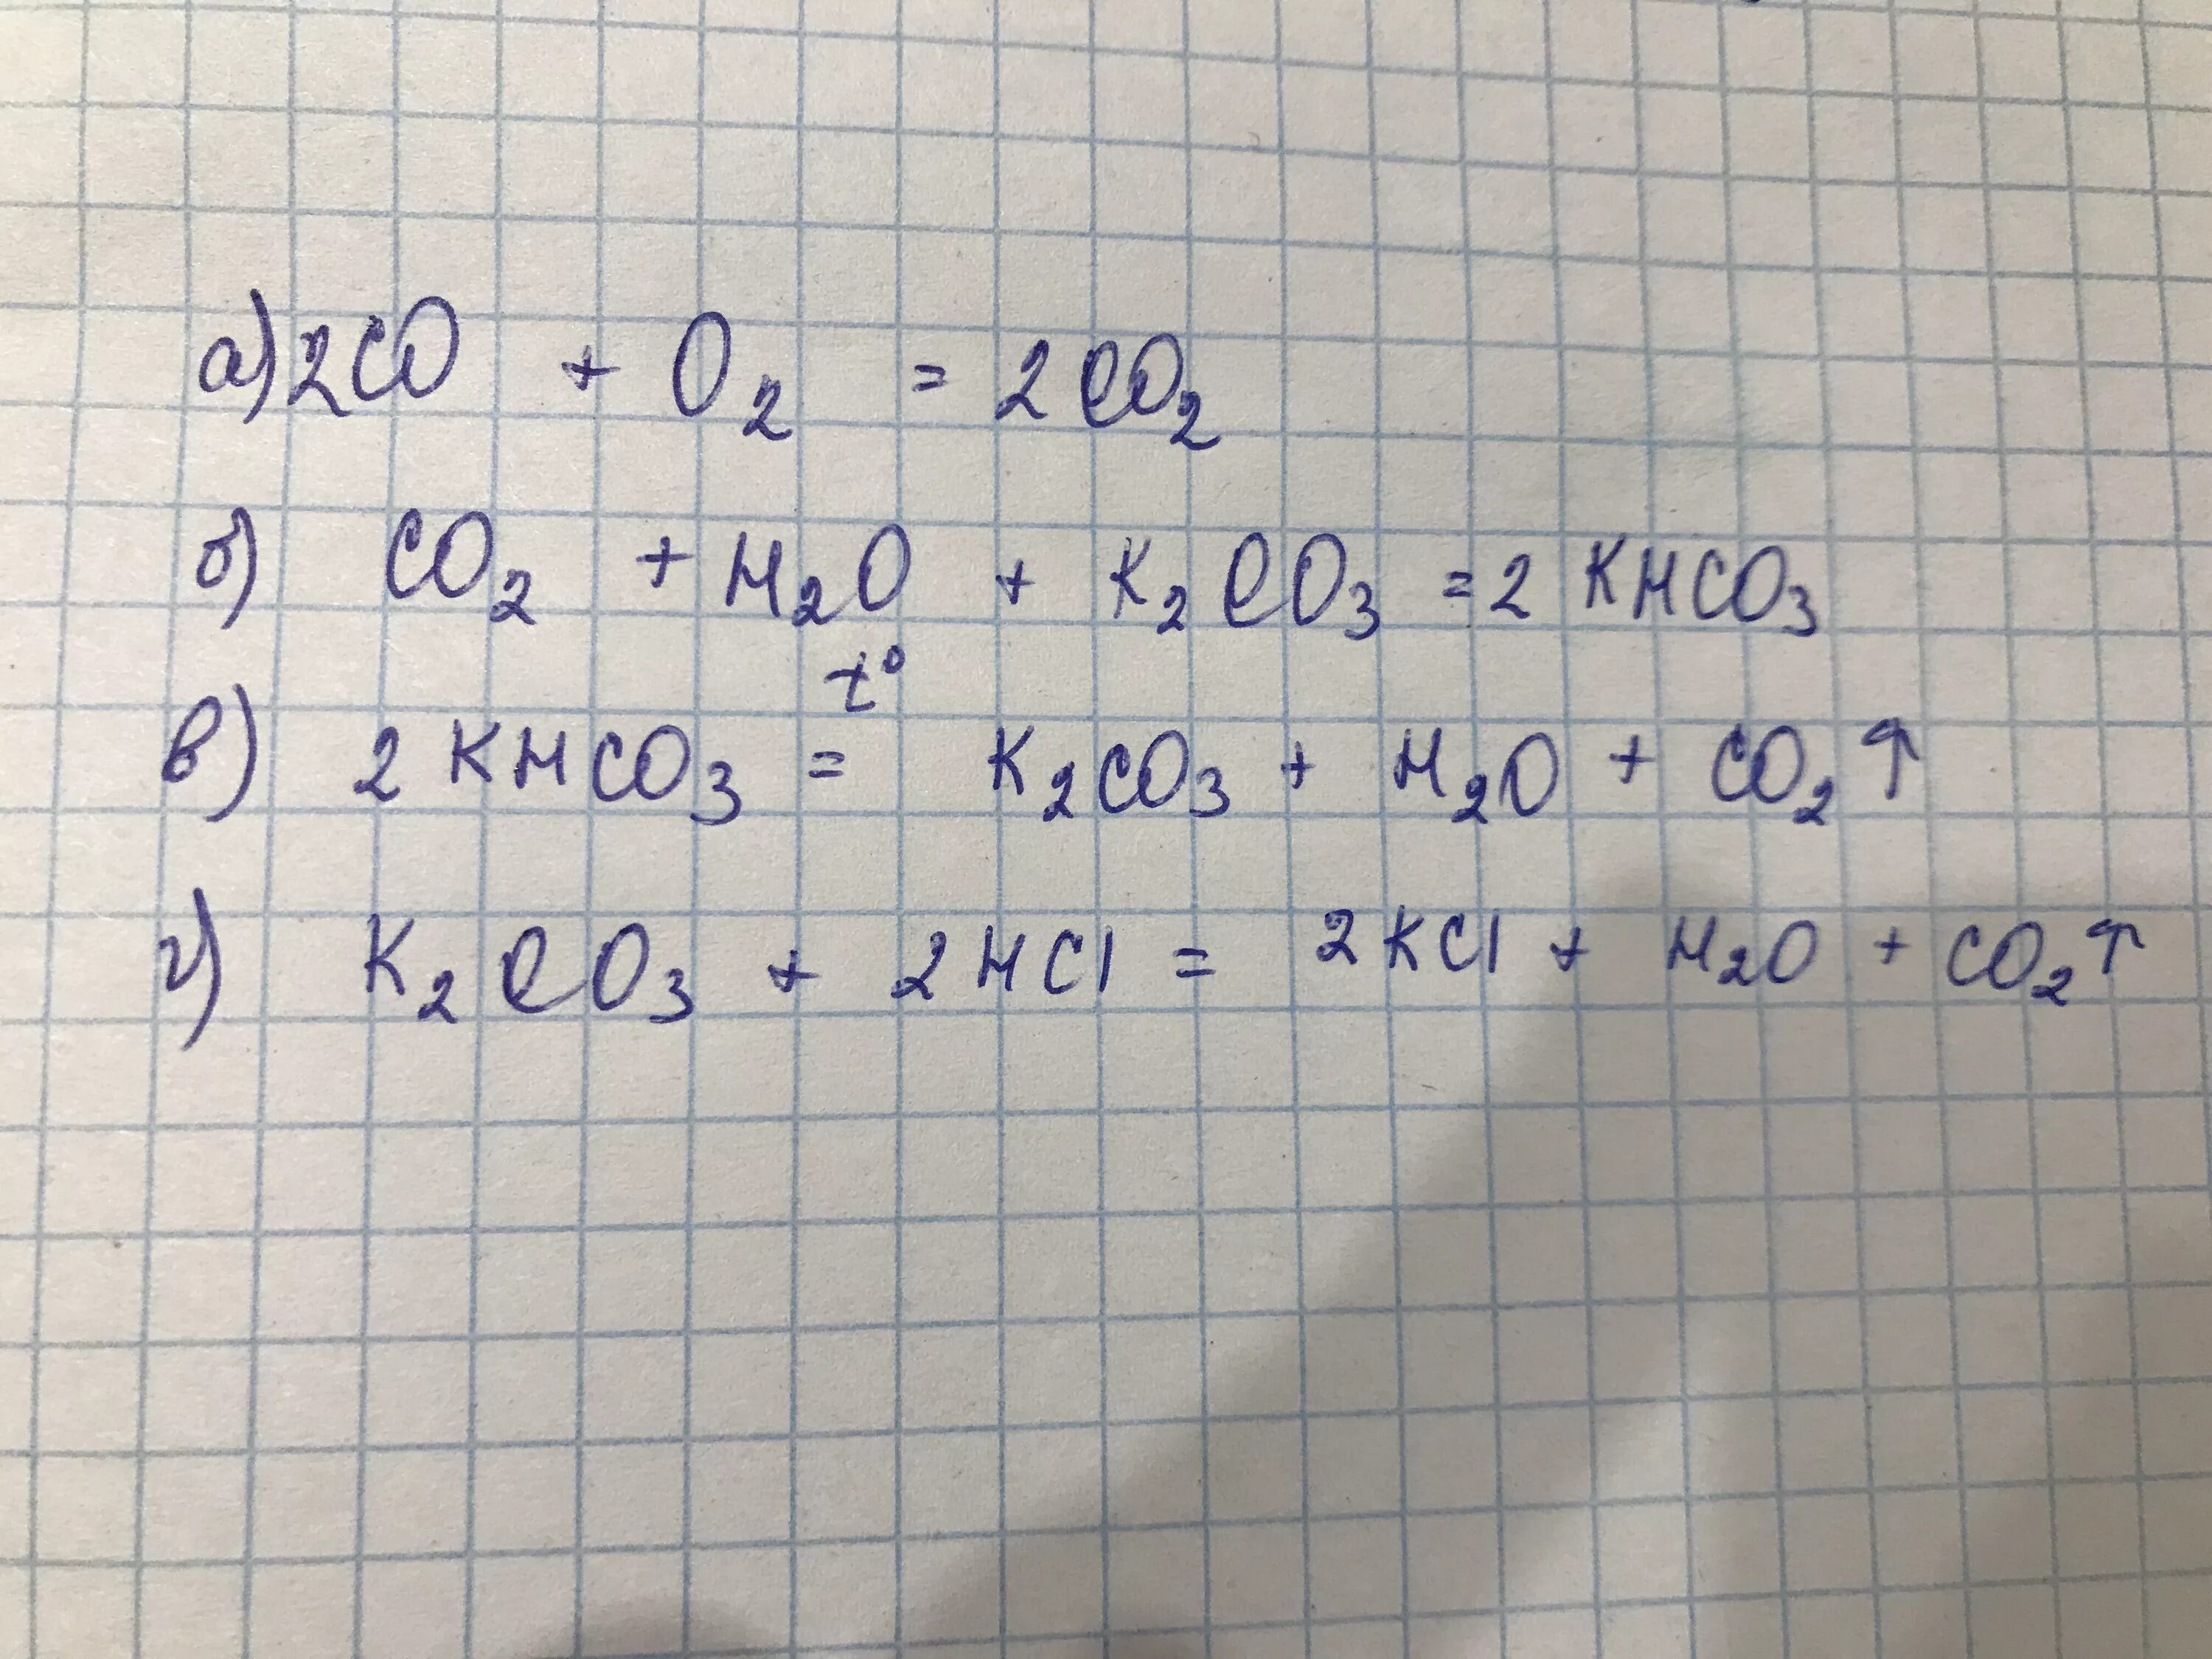 а) 2CO + O₂ = 2CO₂
б) CO₂ + H₂O + K₂CO₃ = 2KHCO₃
t°
в) 2KHCO₃ = K₂CO₃ + H₂O + CO₂↑
г) K₂CO₃ + 2HCl = 2KCl + H₂O + CO₂↑